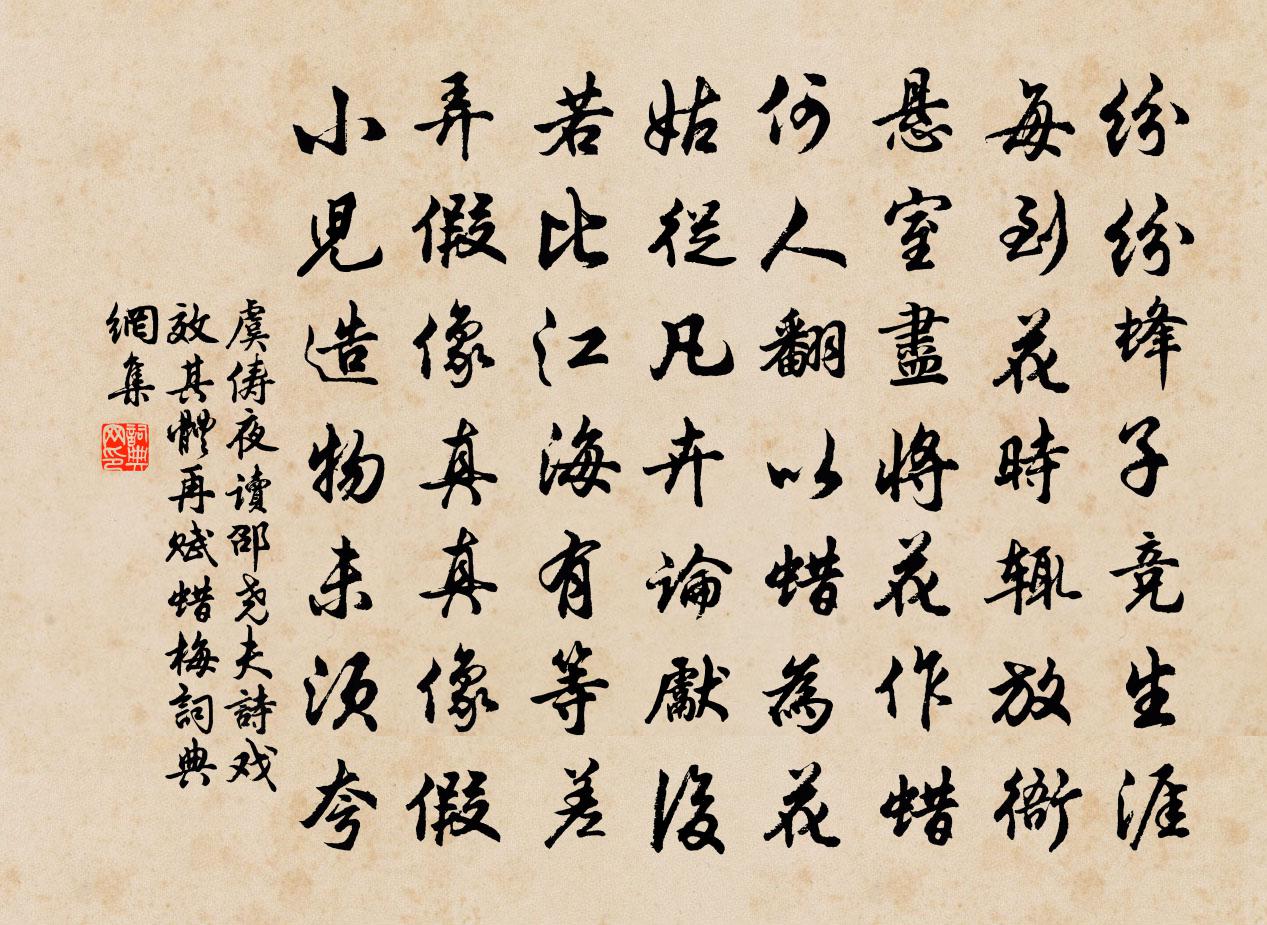 紛紛蜂子竞生涯
每到花時辄放衙
悬室盡將花作蜡
何人翻以蜡為花
姑從凡卉論獻後
若比江海有等差
弄假像真真像假
小児造物未須夸
虞俦夜讀邵尧夫詩戏
效其體再赋蜡梅詞典
網集
詞典网印